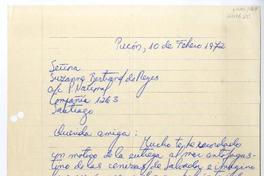 Pucón, 10 de Febrero 1972
Señora
Suzanne Bertrand de Reyes
a/c P. National
Compañía 1263
Santiago
Querida amiga: Mucho te he recordado
con motivo de la entrega al mar antofagas-
tino de las cenizas de Salvador e imagino